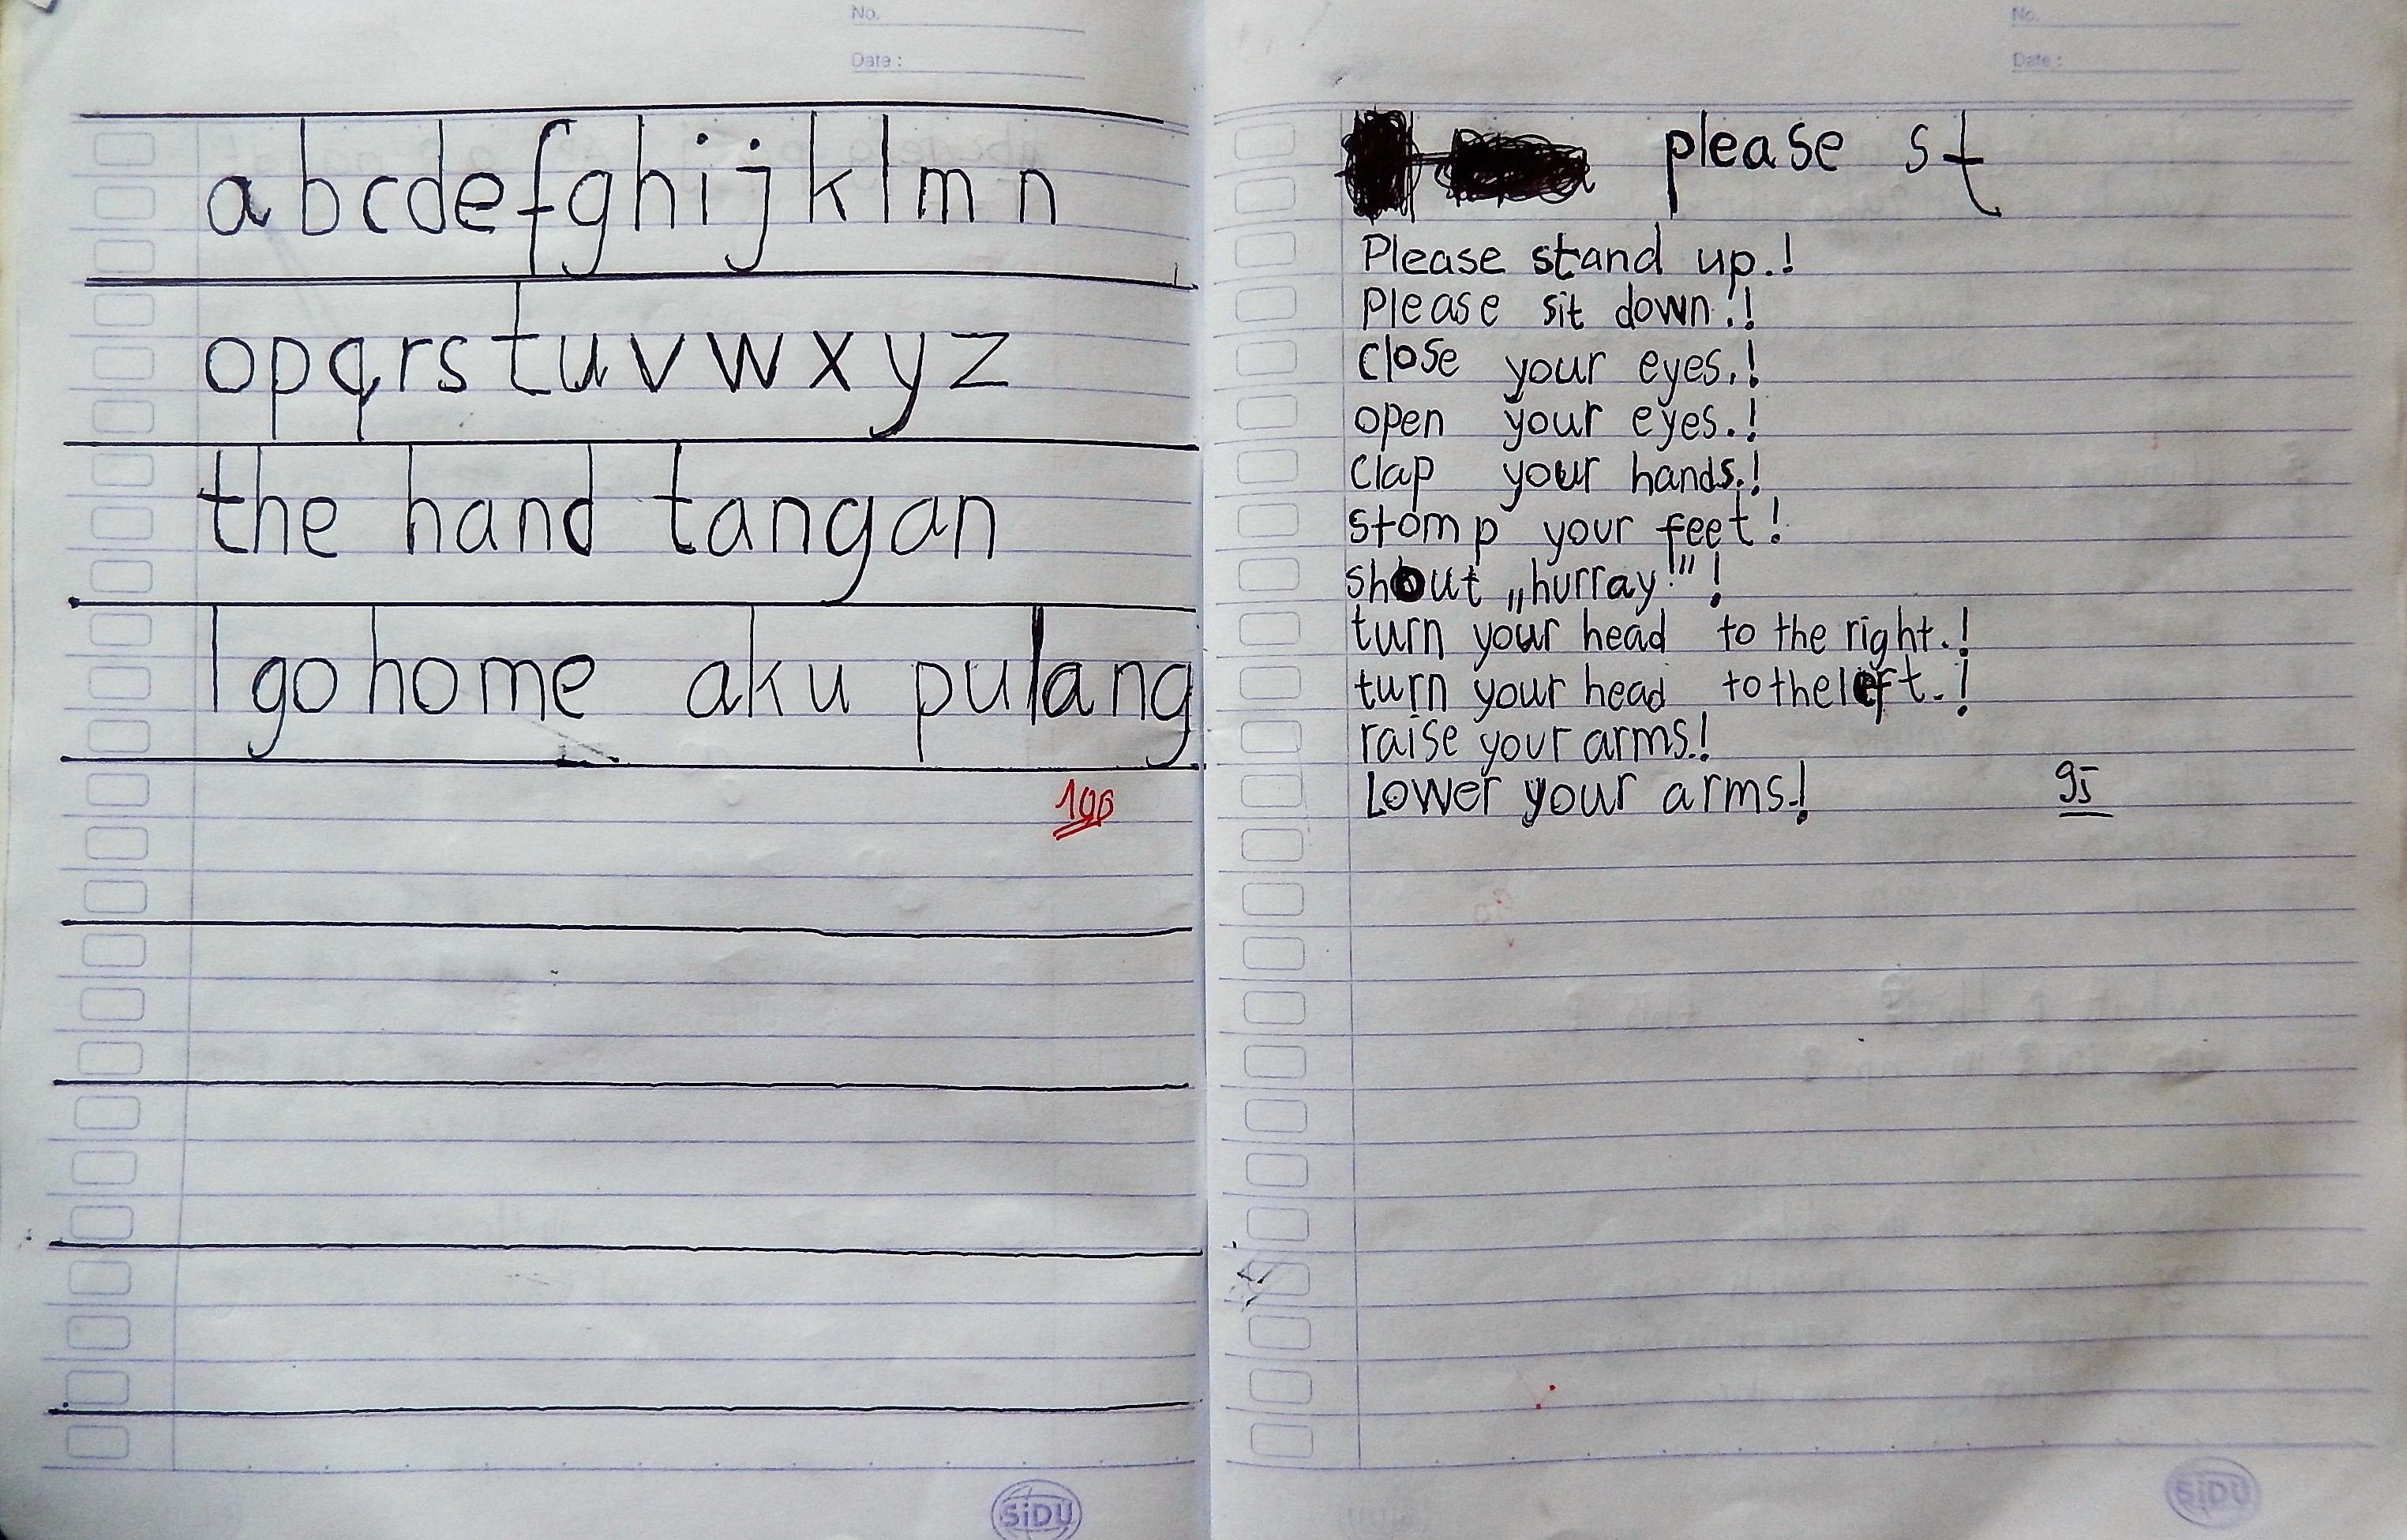 No.
Date :
a b c d e f g h i j k l m n
o p q r s t u v w x y z
the hand tangan
I go home aku pulang
100
SiDU
No.
Date :
please st
Please stand up.!
Please sit down.!
close your eyes.!
open your eyes.!
clap your hands.!
stomp your feet!
shout „hurray!"!
turn your head to the right.!
turn your head to the left.!
raise your arms.!
Lower your arms.!
95
SiDU